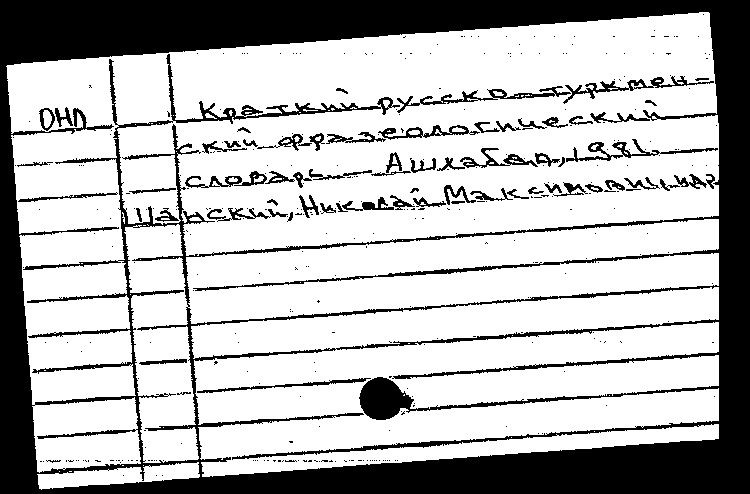 ОНД Краткий русско-туркмен-
ский фразеологический
словарь. — Ашхабад, 1981.
Шанский, Николай Максимович, и др.